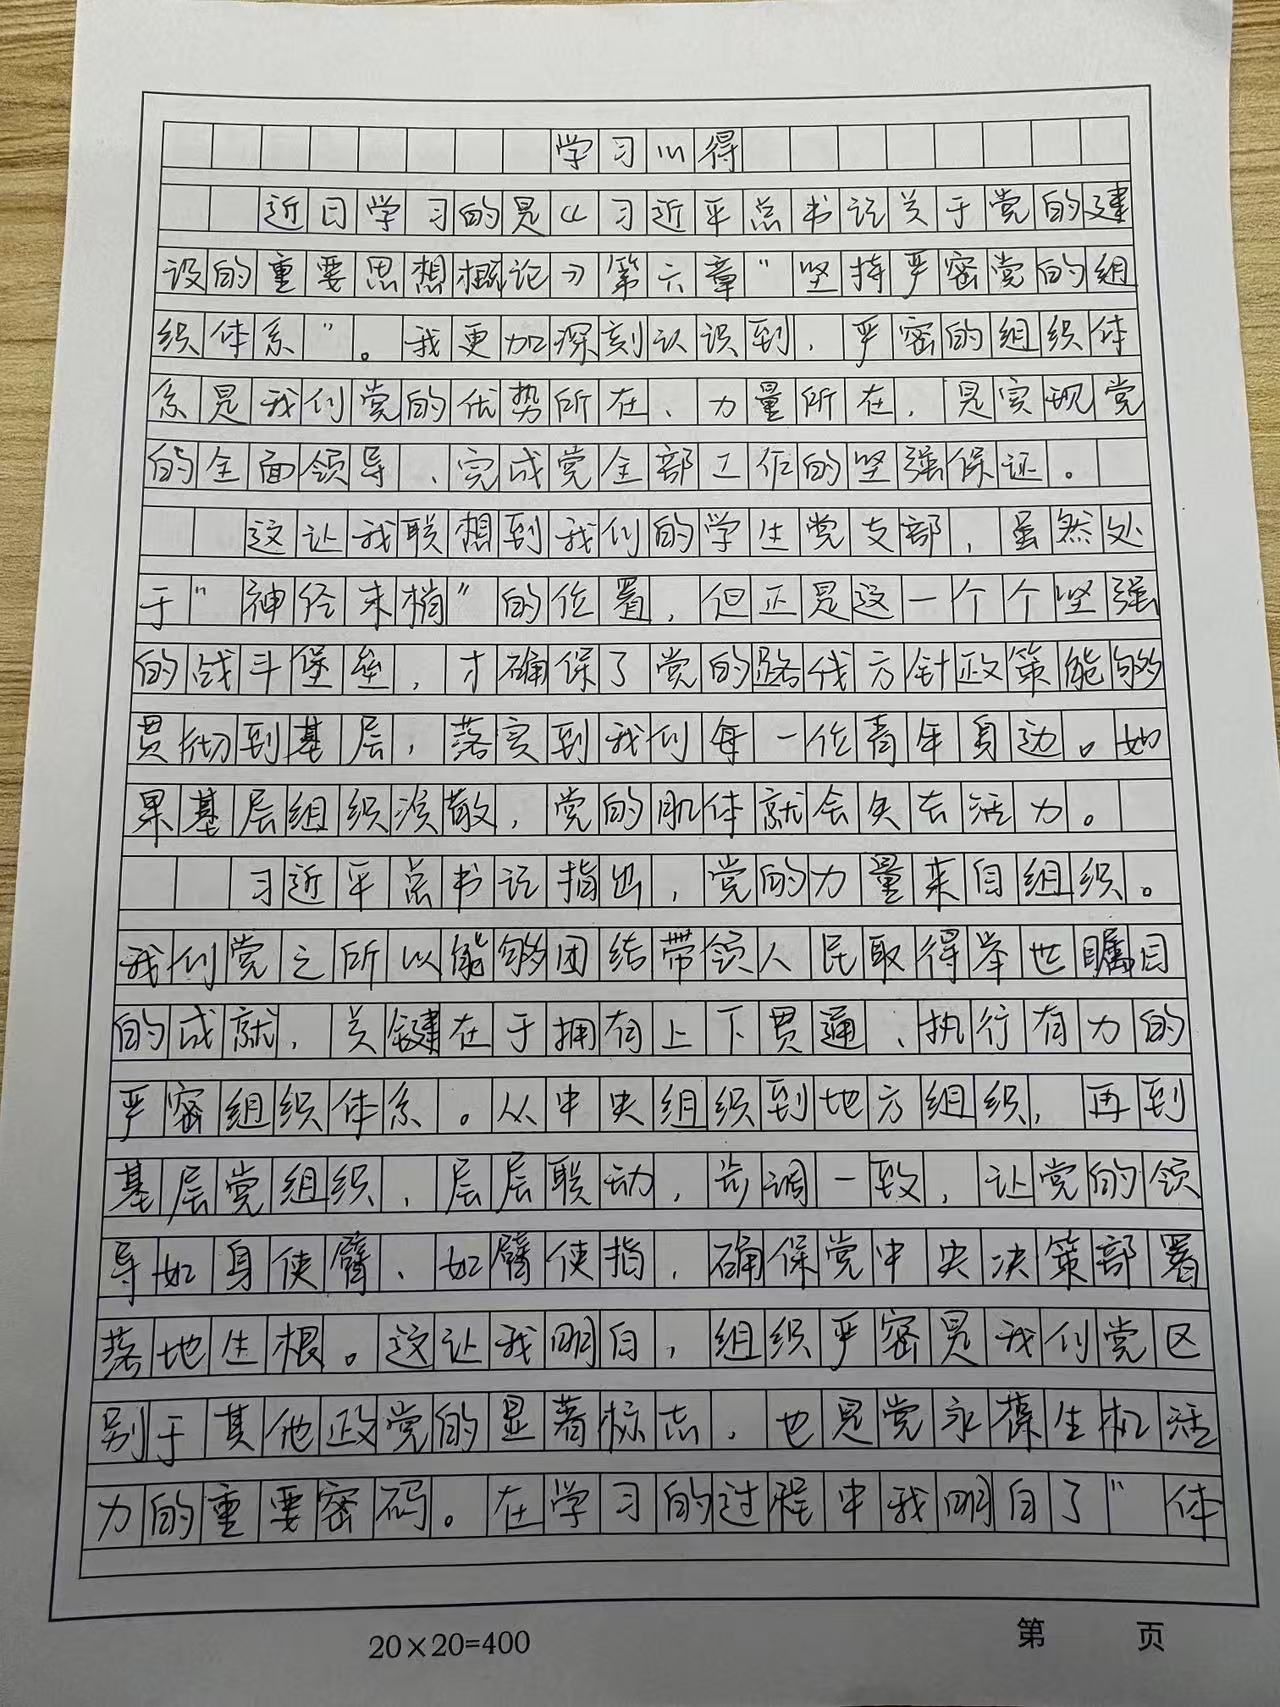 学习心得
近日学习的是《习近平总书记关于党的建
设的重要思想概论》第六章“坚持严密党的组
织体系”。我更加深刻认识到，严密的组织体
系是我们党的优势所在、力量所在，是实现党
的全面领导、完成党全部工作的坚强保证。
这让我联想到我们的学生党支部，虽然处
于“神经末梢”的位置，但正是这一个个坚强
的战斗堡垒，才确保了党的路线方针政策能够
贯彻到基层，落实到我们每一位青年身边。如
果基层组织涣散，党的肌体就会失去活力。
习近平总书记指出，党的力量来自组织。
我们党之所以能够团结带领人民取得举世瞩目
的成就，关键在于拥有上下贯通、执行有力的
严密组织体系。从中央组织到地方组织，再到
基层党组织，层层联动，步调一致，让党的领
导如身使臂、如臂使指，确保党中央决策部署
落地生根。这让我明白，组织严密是我们党区
别于其他政党的显著标志，也是党永葆生机活
力的重要密码。在学习的过程中我明白了“体
20×20=400
第 页